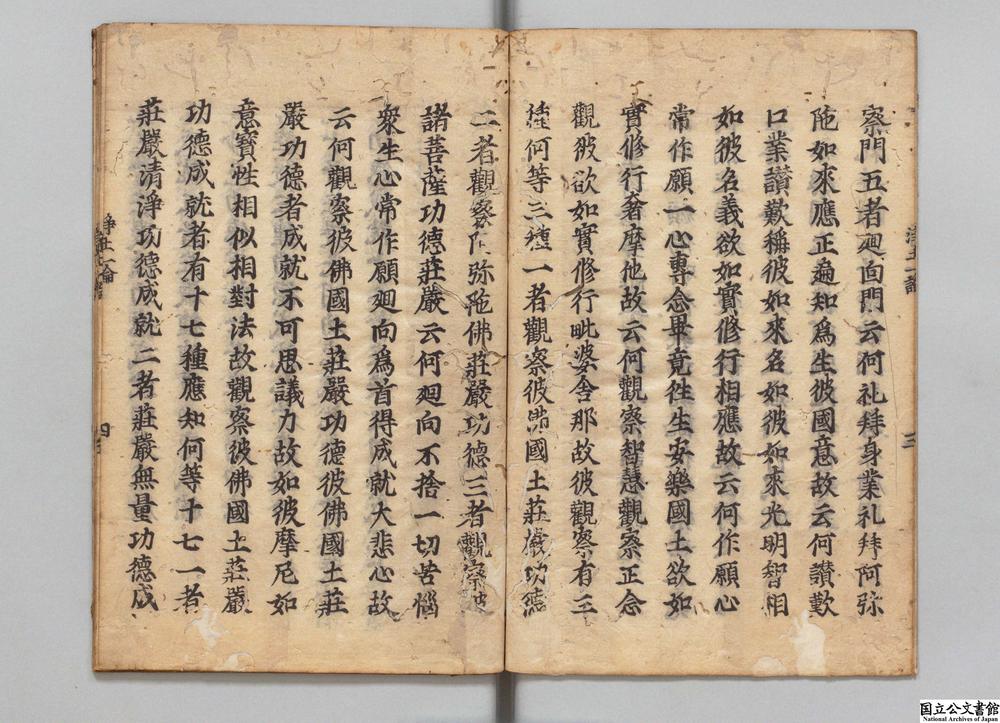 察門五者廻向門云何礼拜身業礼拜阿弥
陁如來應正遍知為生彼國意故云何讃歎
口業讃歎稱彼如來名如彼如來光明智相
如彼名義欲如實修行相應故云何作願心
常作願一心專念畢竟徃生安樂國土欲如
實修行奢摩他故云何觀察智慧觀察正念
觀彼欲如實修行毗婆舍那故彼觀察有三
種何等三種一者觀察彼佛國土莊嚴功德
二者觀察阿弥陁佛莊嚴功德三者觀察彼
諸菩薩功德莊嚴云何廻向不捨一切苦惱
衆生心常作願廻向為首得成就大悲心故
云何觀察彼佛國土莊嚴功德彼佛國土莊
嚴功德者成就不可思議力故如彼摩尼如
意寶性相似相對法故觀察彼佛國土莊嚴
功德成就者有十七種應知何等十七一者
莊嚴清淨功德成就二者莊嚴無量功德成
淨土論 三
淨土論 四
国立公文書館
National Archives of Japan